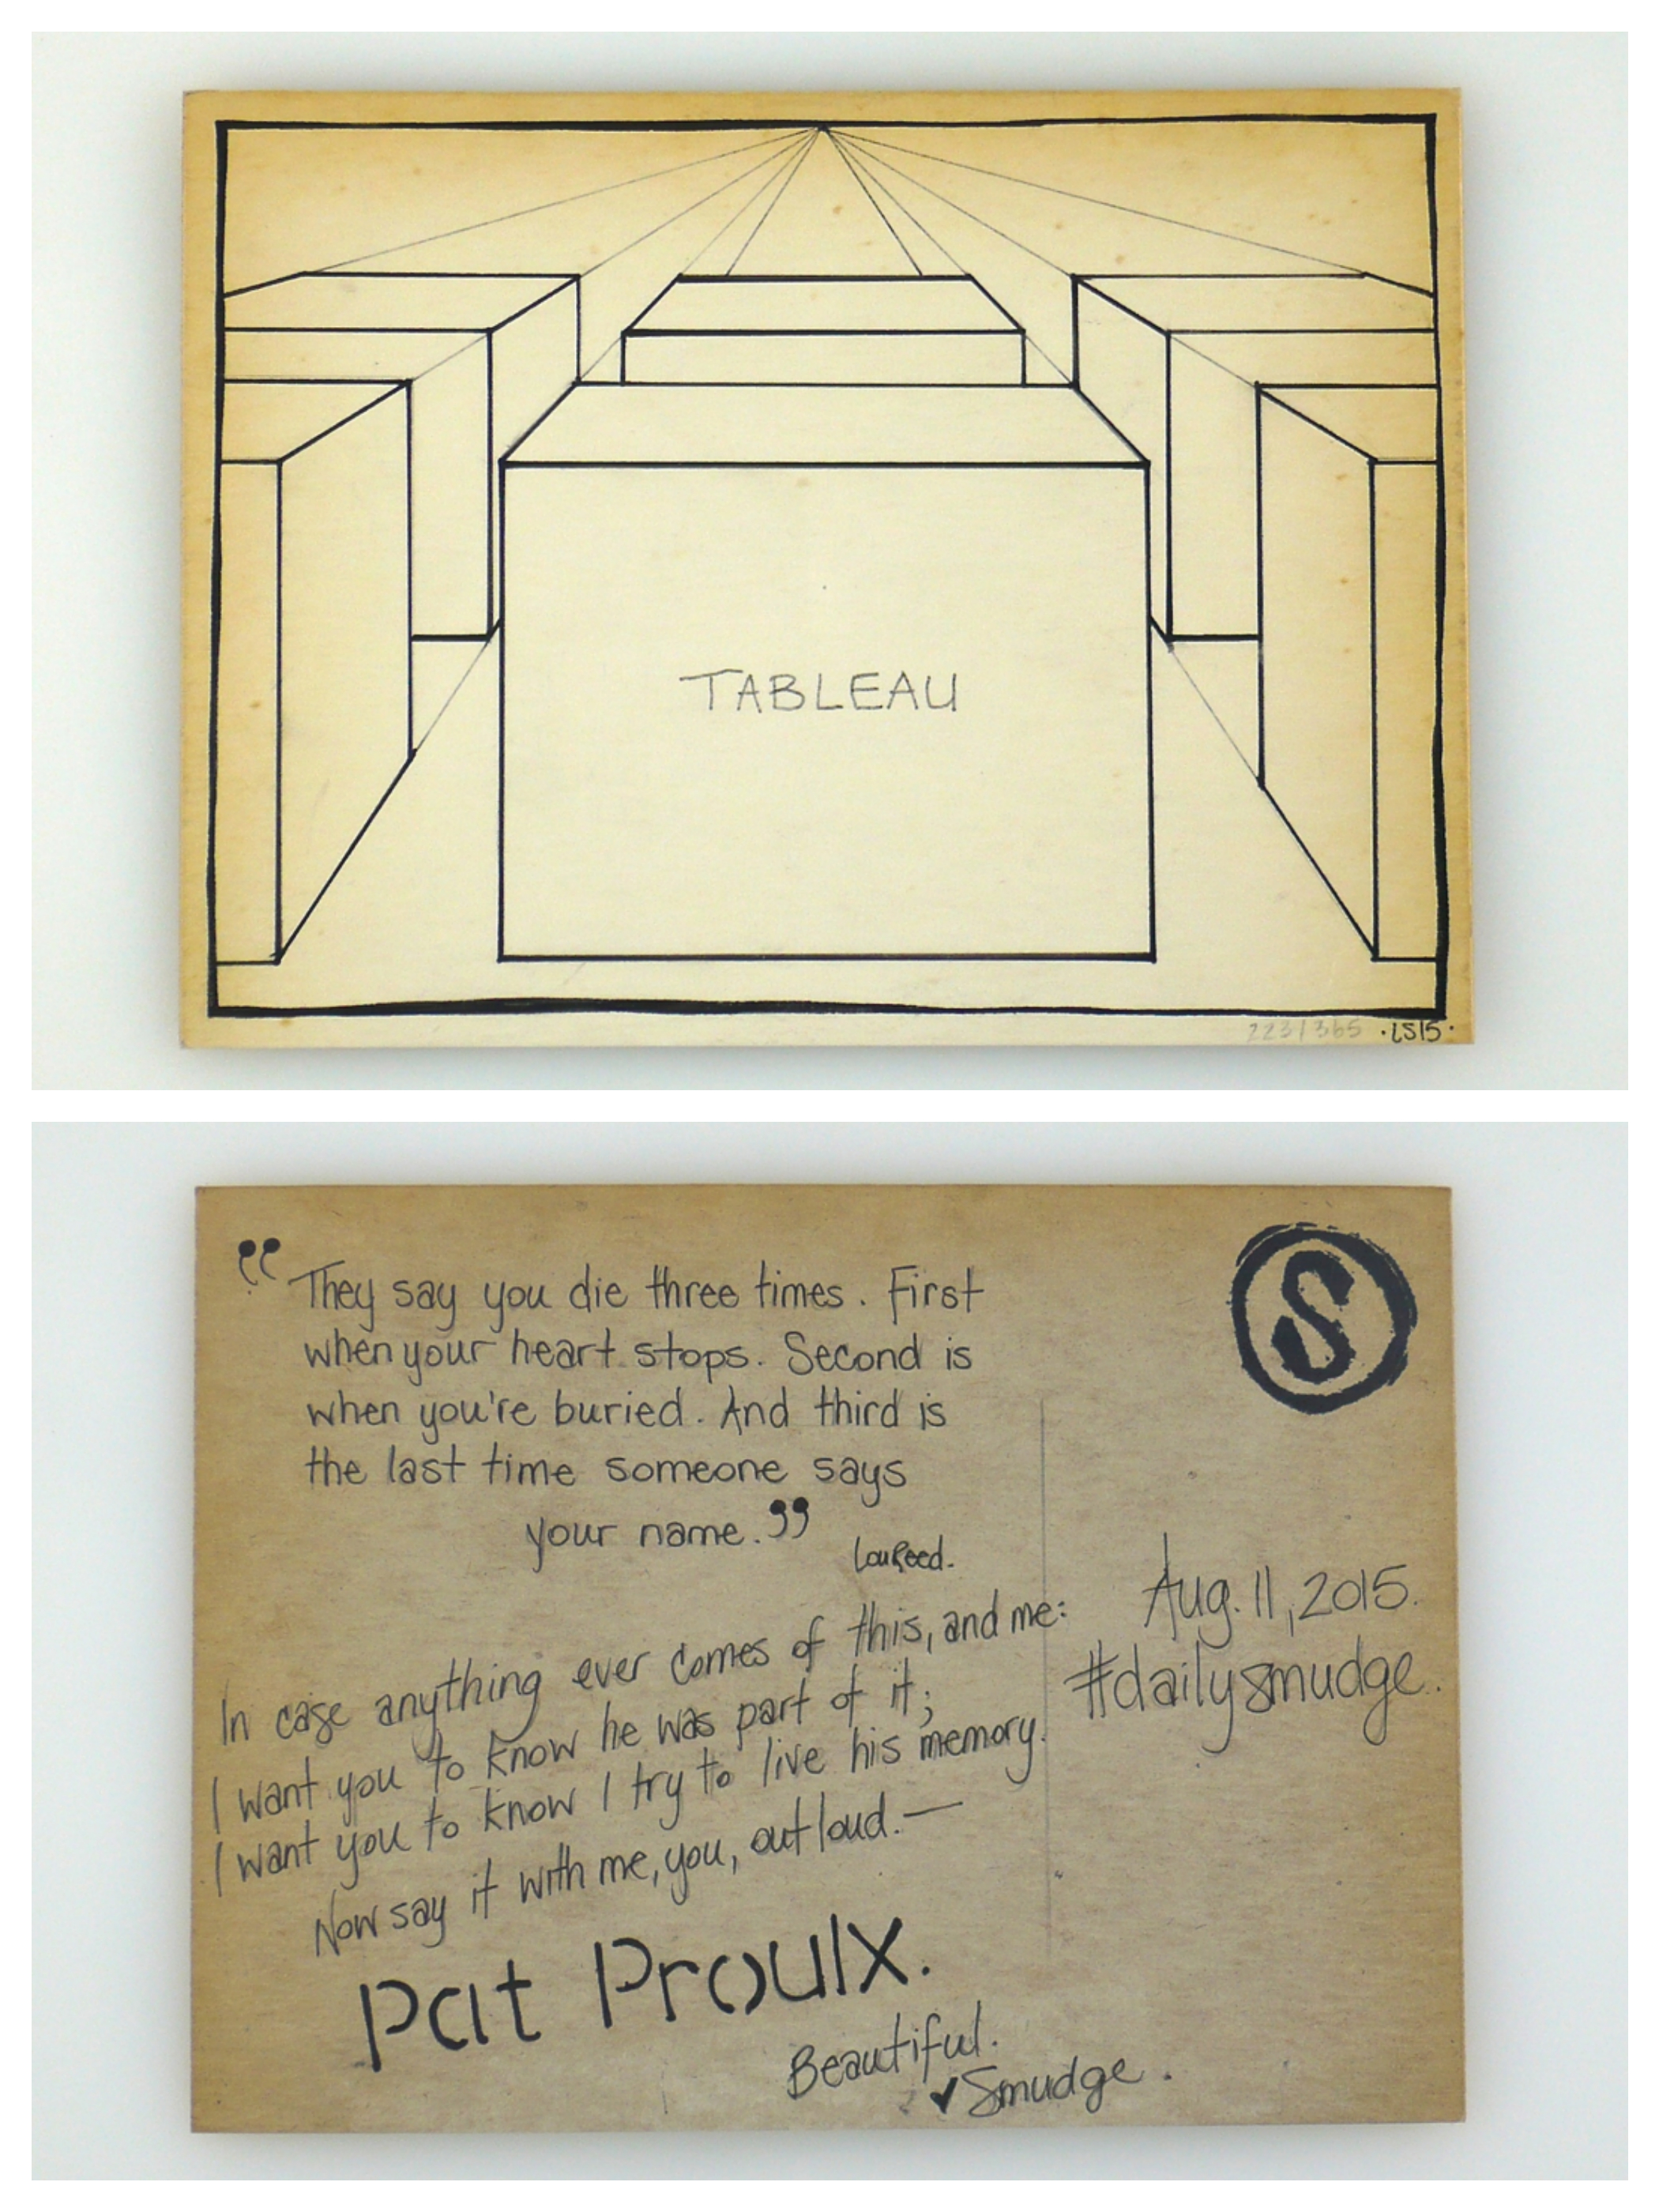 TABLEAU
223/365 ·LS15·
“They say you die three times. First
when your heart stops. Second is
when you're buried. And third is
the last time someone says
your name.”
Lou Reed.
S
Aug. 11, 2015.
#dailysmudge.
In case anything ever comes of this, and me:
I want you to know he was part of it;
I want you to know I try to live his memory.
Now say it with me, you, out loud.—
Pat Proulx.
Beautiful.
Smudge.